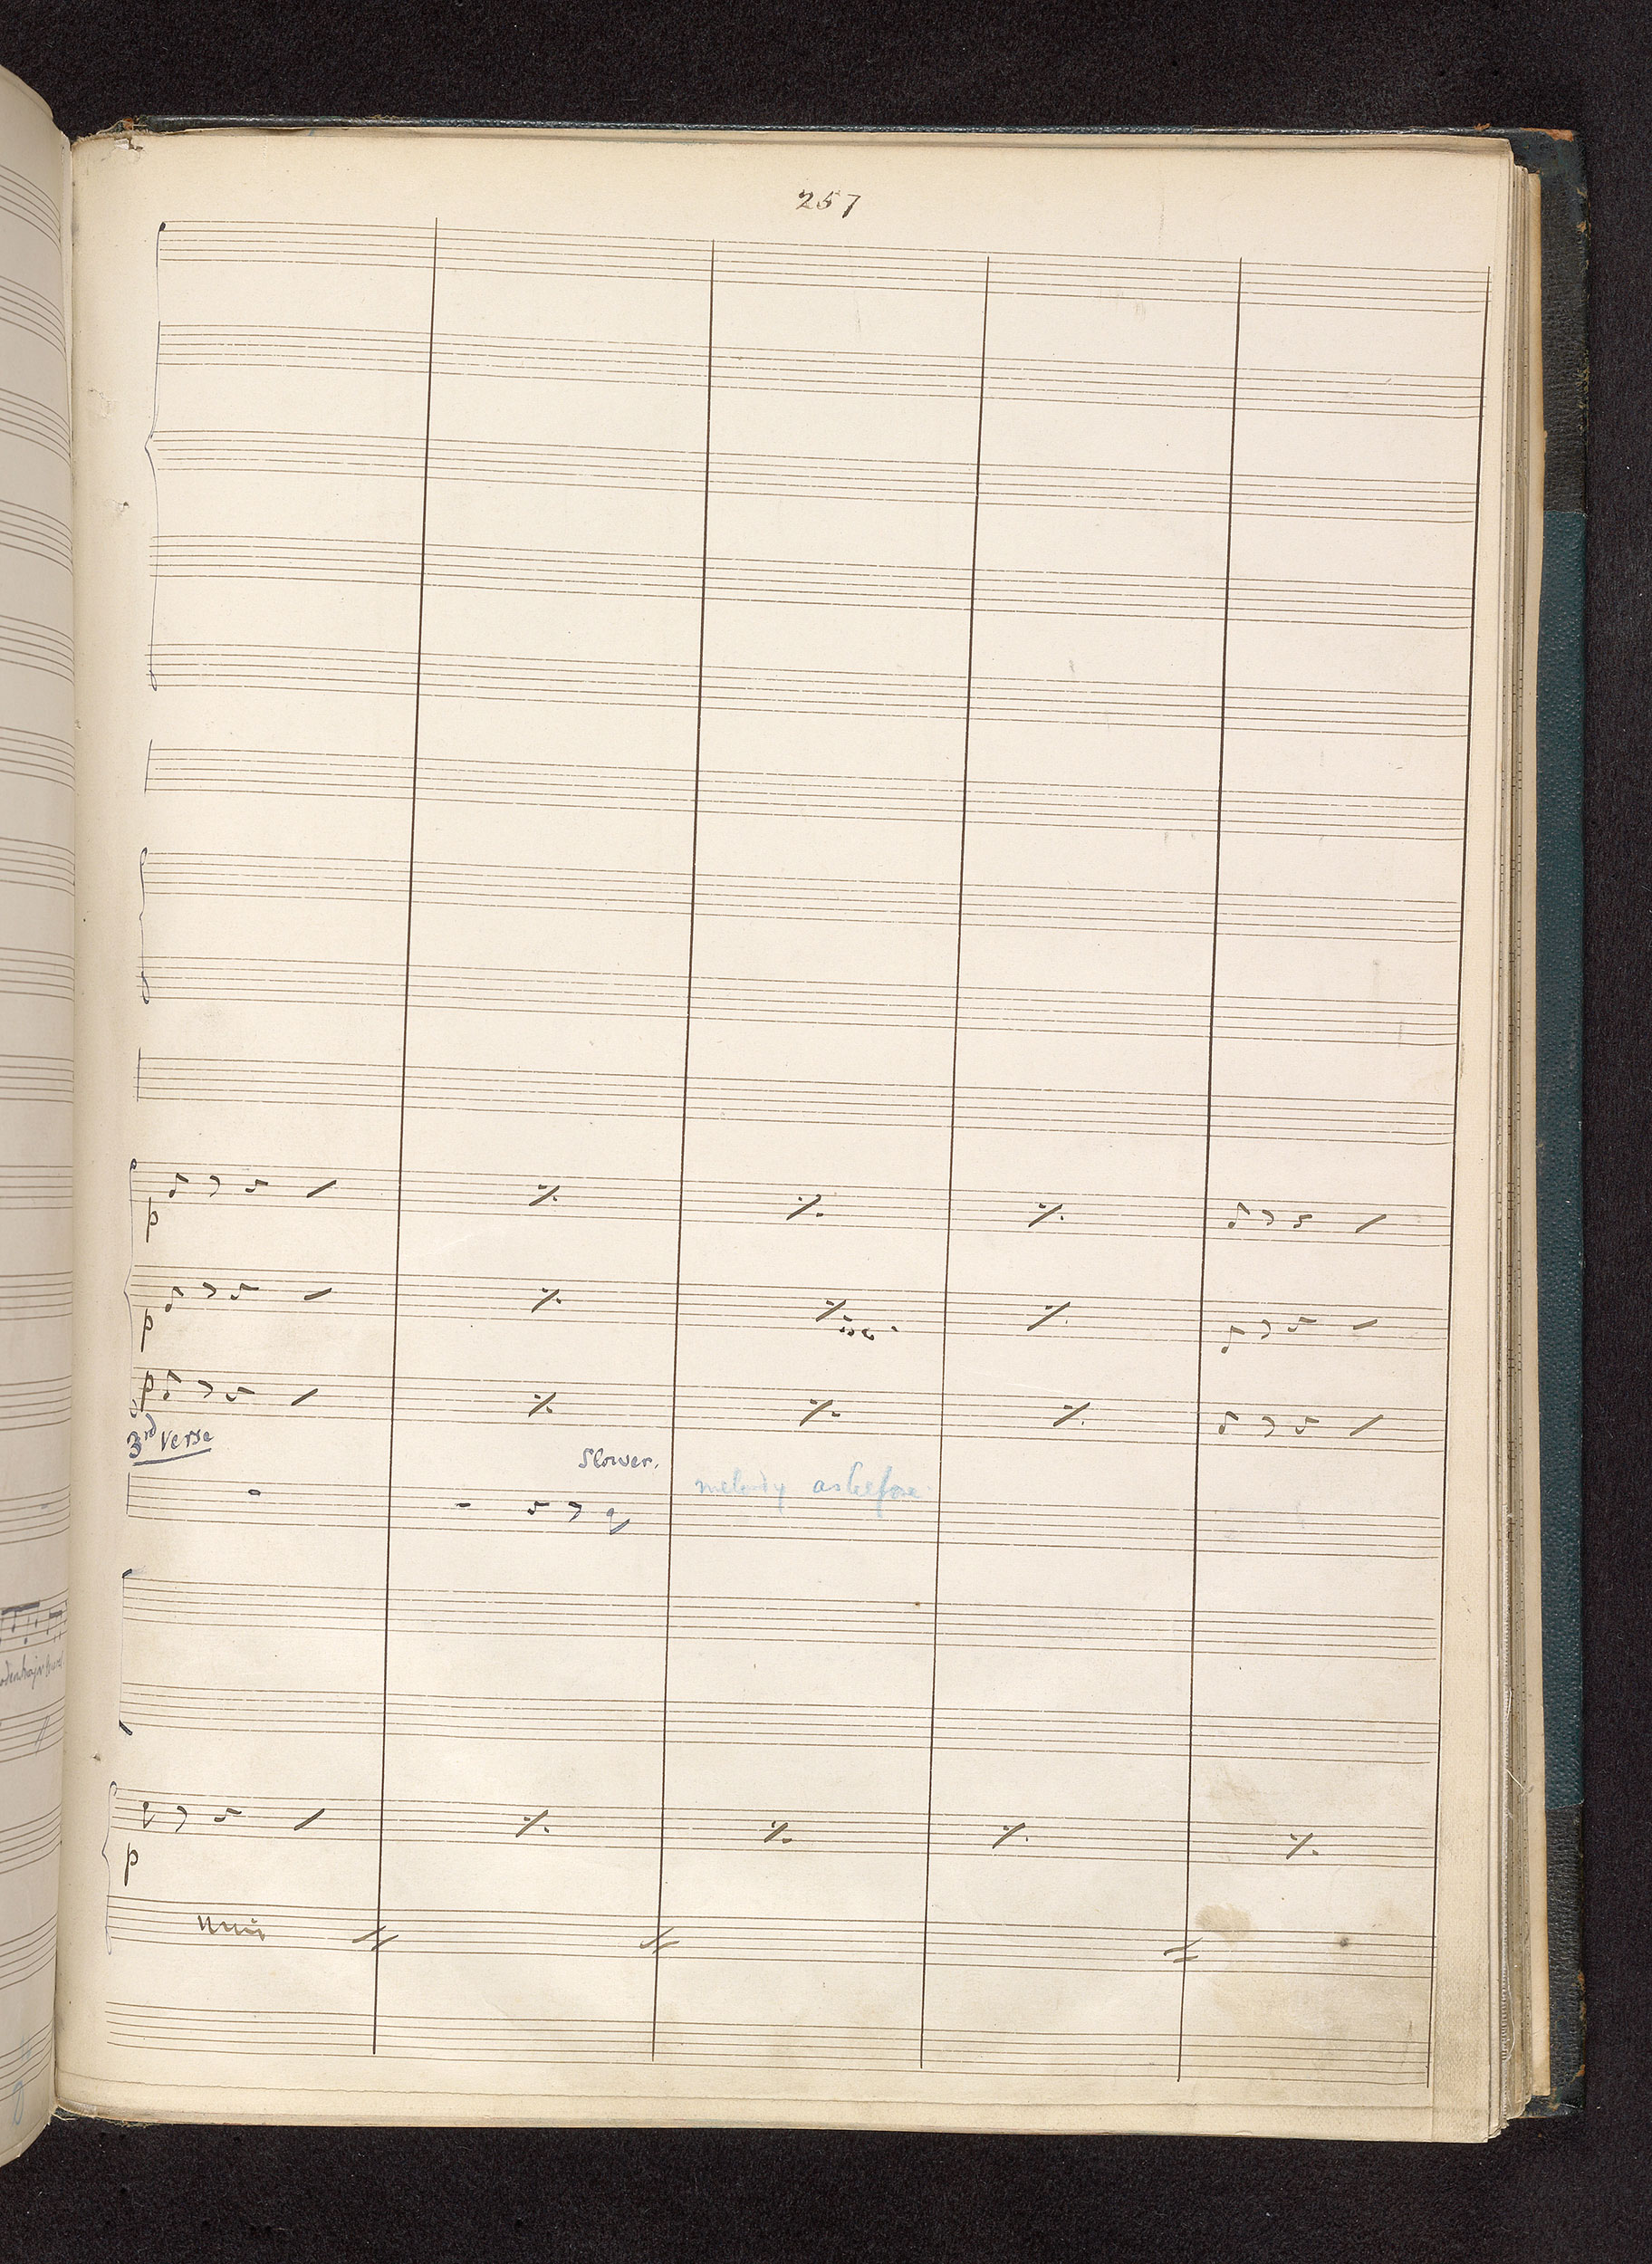 257
p
p
p
3rd Verse
Slower.
melody as before
p
unis